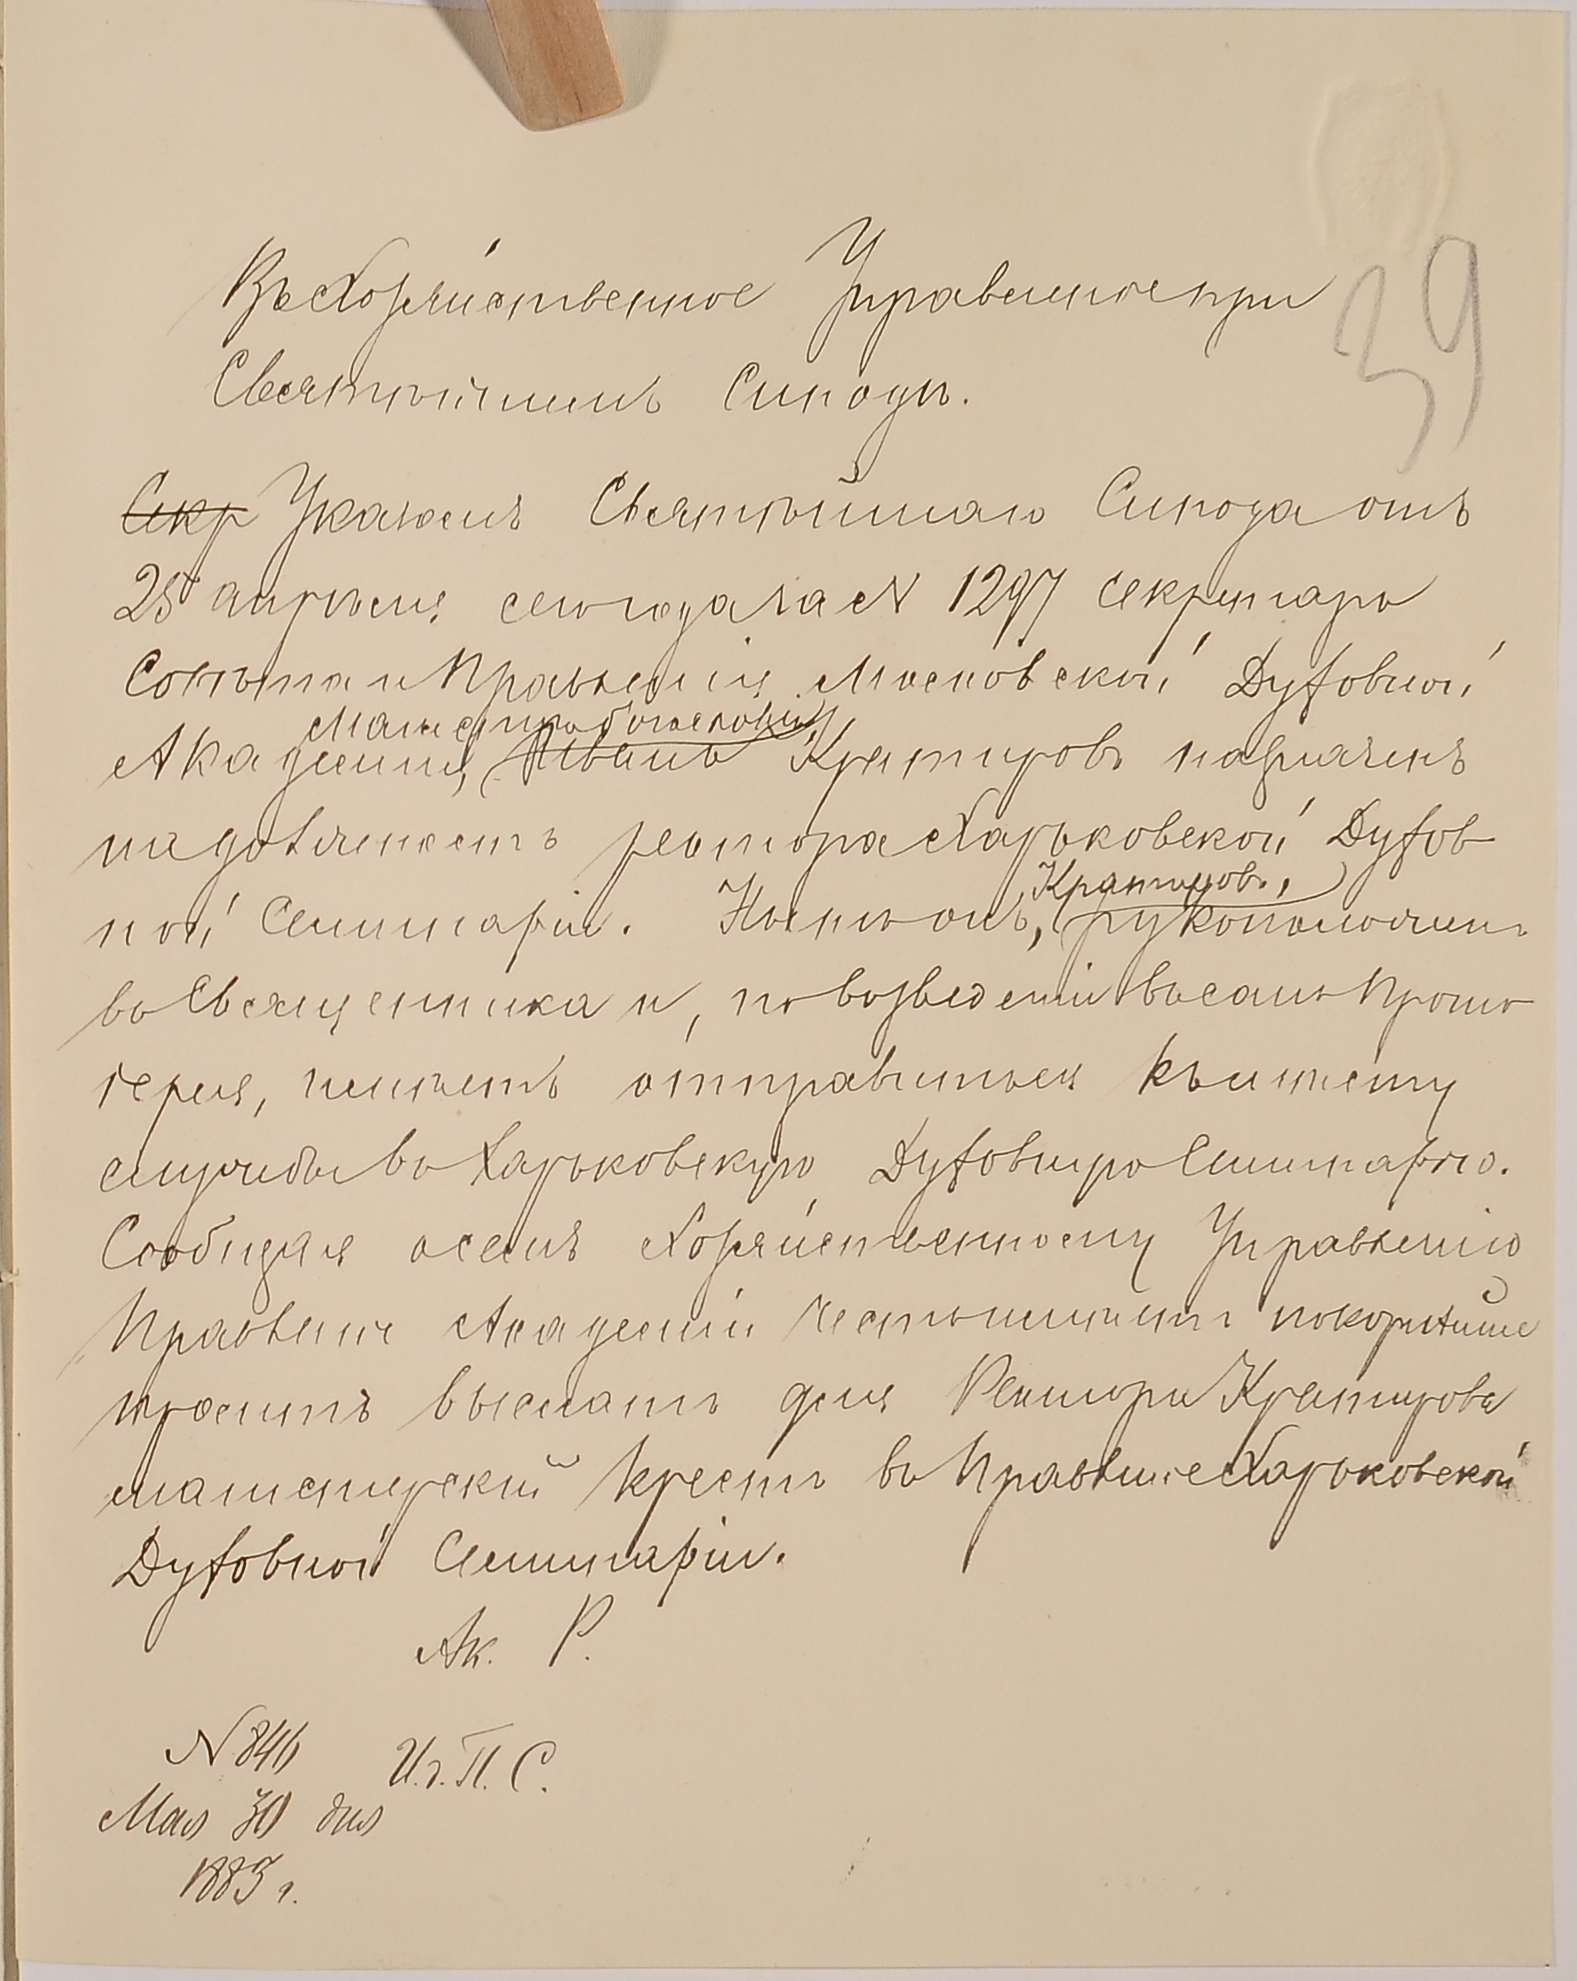 39
Въ Хозяйственное Управленіе при
Святѣйшемъ Синодѣ.
Секр Указомъ Святѣйшаго Синода отъ
25 апрѣля сего года за № 1297 секретарь
Совѣта и Правленія Московской Духовной
Магистръ богословія
Академіи, Иванъ Кратировъ назначенъ
на должность ректора Харьковской Духов
Кратировъ,
ной Семинаріи. Нынѣ онъ, рукоположенъ
во Священника и, по возведеніи въ санъ Прото
іерея, имѣетъ отправиться къ мѣсту
службы въ Харьковскую Духовную Семинарію.
Сообщая о семъ Хозяйственному Управленію
Правленіе Академіи честь имѣетъ покорнѣйше
проситъ выслать для Ректора Кратирова
магистерскій крестъ въ Правленіе Харьковской
Духовной Семинаріи.
Ак. Р.
№ 846
И. г. П. С.
Мая 30 дня
1883 г.